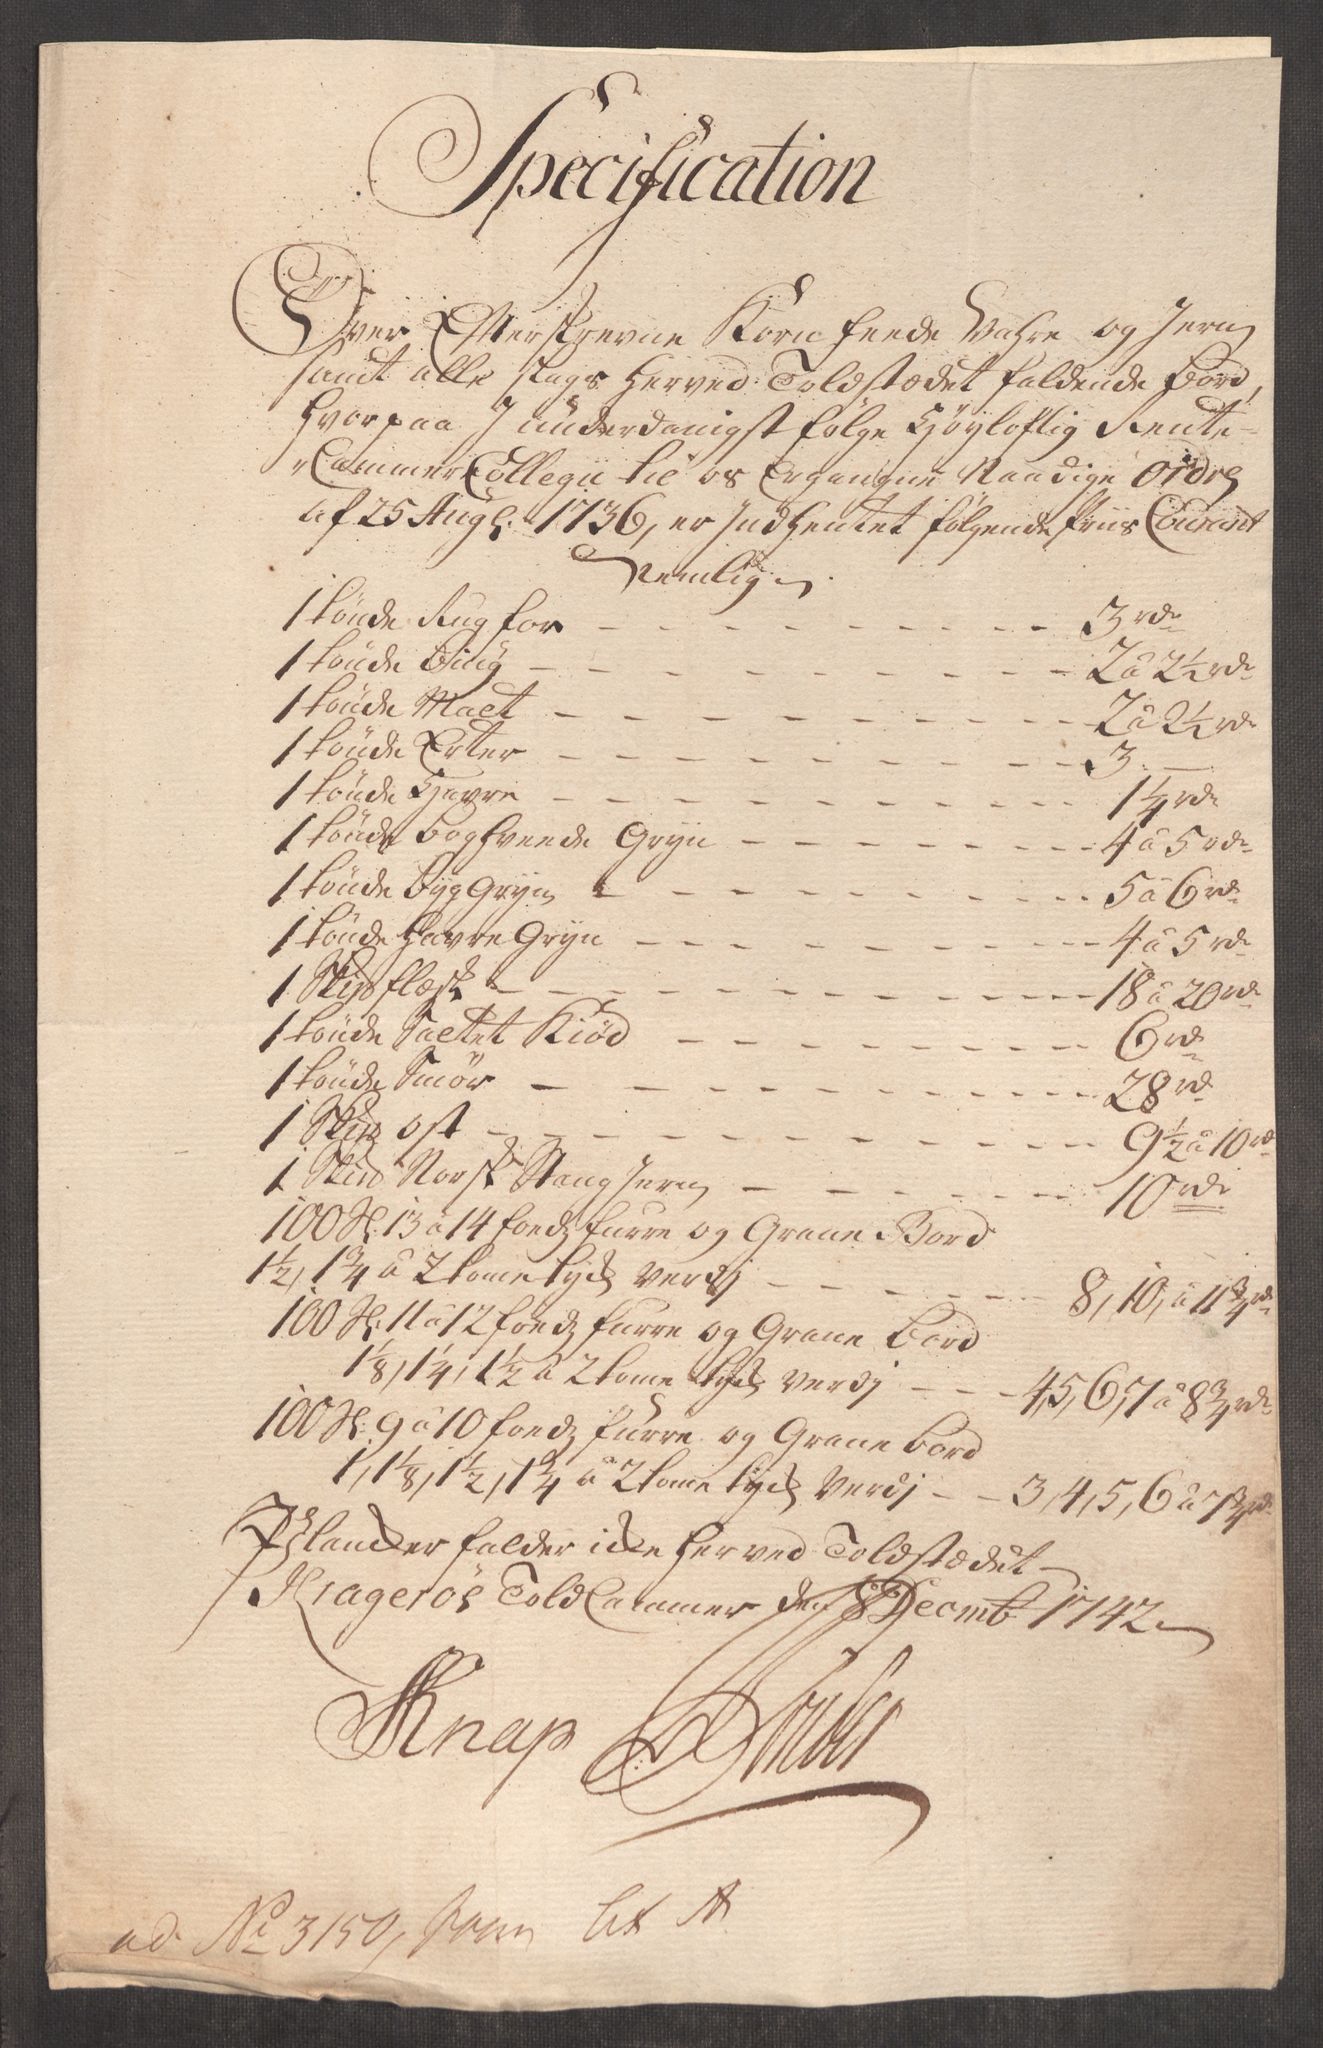 Specification
Over Efterskrevne Korn feede Vahre og Jern
samt alle slags herved Toldstædet faldende Bord,
hvorpaa J underdanigst følge Høyloflig Rente-
Cammer Collegii til os Ergangne Naadige Ordre
af 25 Aug: 1736, er Jndhentet følgende Priis Courant
Nemlig
1 tønde Rug for - - - 3 rd
1 tønde Byg - - - 2 à 2½ rd
1 tønde Malt - - - 2 à 2½ rd
1 tønde Erter - - - 3 -
1 tønde Havre - - - 1¼ rd
1 tønde Boghveede Gryn - - - 4 à 5 rd
1 tønde Byg Gryn - - - 5 à 6 rd
1 tønde Havre Gryn - - - 4 à 5 rd
1 Sk℔ flesk - - - 18 à 20 rd
1 tønde Saltet Kiød - - - 6 rd
1 tønde Smør - - - 28 rd
1 Sk℔ ost - - - 9½ à 10 rd
1 Sk℔ Norsk Stang Jern - - - 10 rd
100 St: 13 à 14 foed furre og Grane Bord
1½, 1¾ à 2 tome tyck verdj - - - 8, 10, à 11¾ rd
100 St: 11 à 12 foed furre og Grane Bord
1⅛, 1¼, 1½ à 2 tome tyck verdj - - - 4, 5, 6, 7 à 8¾ rd
100 St: 9 à 10 foed furre og Grane bord
1, 1⅛, 1½, 1¾ à 2 tome tyck Verdj - - 3, 4, 5, 6 à 7¾ rd
falder icke herved Toldstædet
Kragerøe Told Cammer den 8 Decmb 1742
Knap
ad No 3150, Lit A